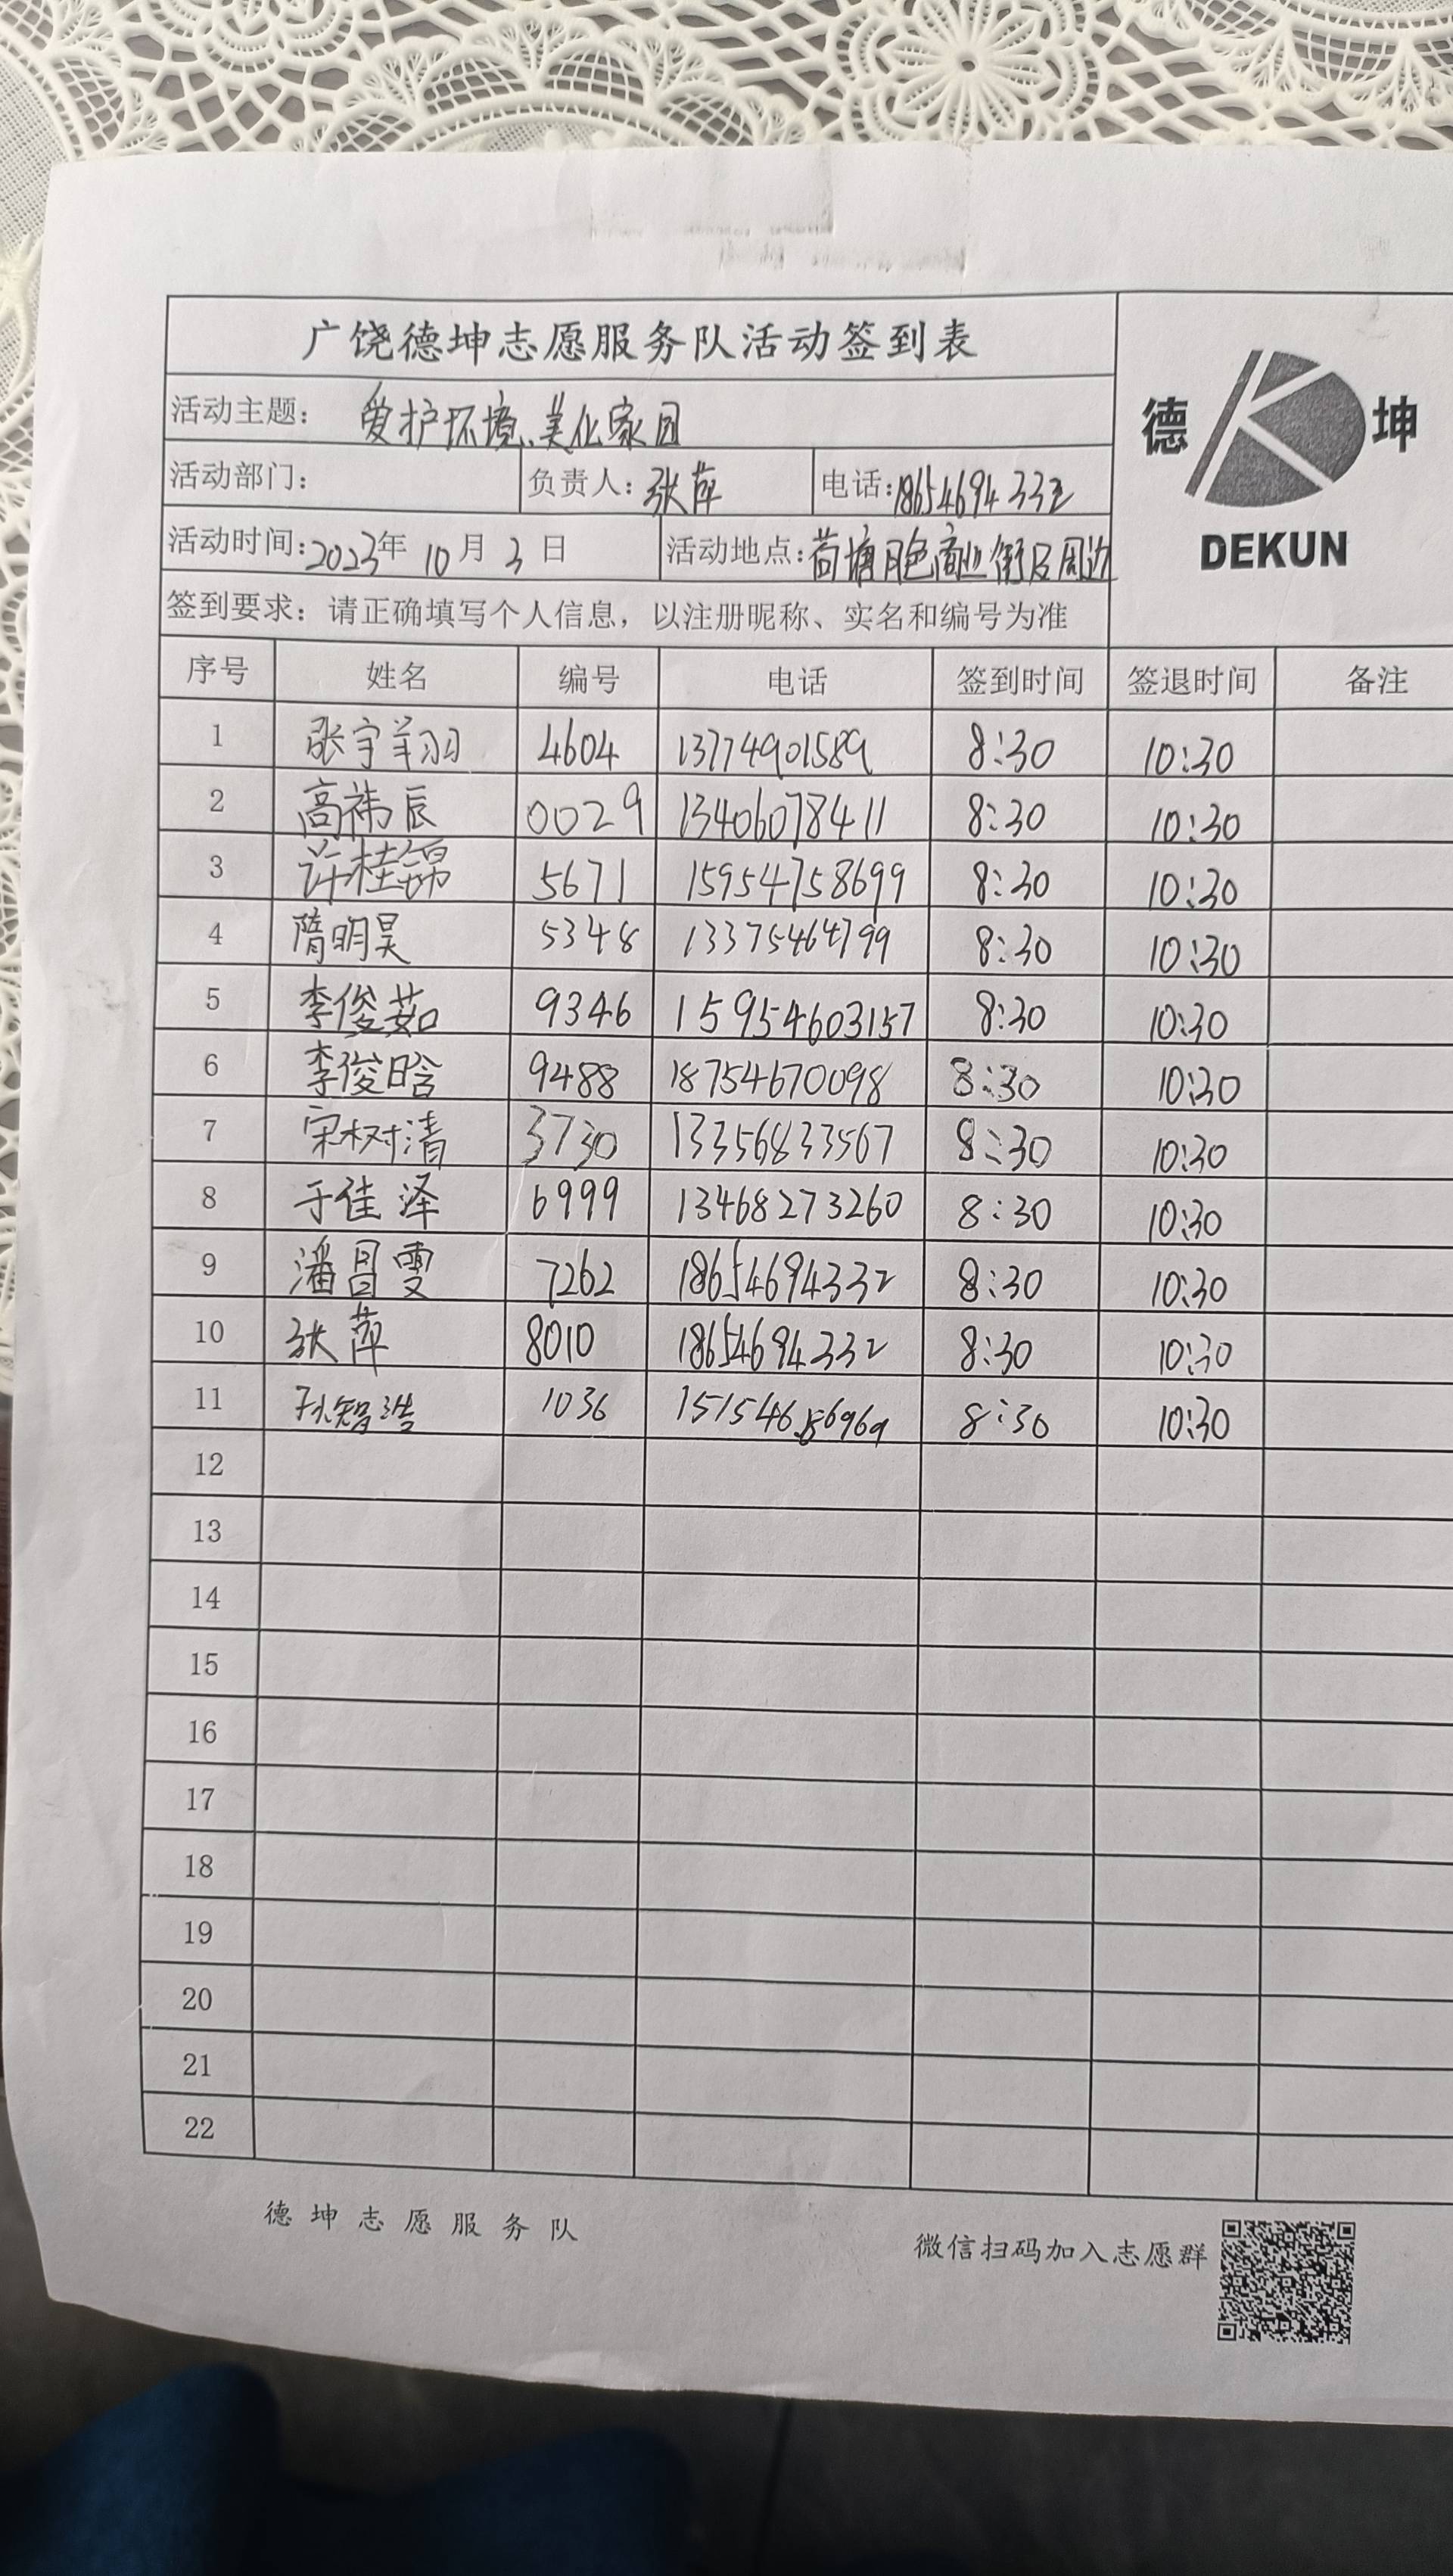 广饶德坤志愿服务队活动签到表
德 坤
DEKUN
活动主题: 爱护环境、美化家园
活动部门: 负责人: 张萍 电话: 18654694332
活动时间: 2023年 10月 3日 活动地点: 荷塘月色商业街及周边
签到要求: 请正确填写个人信息，以注册昵称、实名和编号为准
序号 姓名 编号 电话 签到时间 签退时间 备注
1 张宇翔羽 4604 13774901589 8:30 10:30
2 高祎辰 0029 13406078411 8:30 10:30
3 许桂锦 5671 15954758699 8:30 10:30
4 隋明昊 5348 13375464799 8:30 10:30
5 李俊茹 9346 15954603157 8:30 10:30
6 李俊晗 9488 18754670098 8:30 10:30
7 宋树清 3730 13356833567 8:30 10:30
8 于佳泽 6999 13468273260 8:30 10:30
9 潘昌雯 7262 18654694332 8:30 10:30
10 张萍 8010 18654694332 8:30 10:30
11 孙智浩 1036 8:30 10:30
12
13
14
15
16
17
18
19
20
21
22
德坤志愿服务队
微信扫码加入志愿群